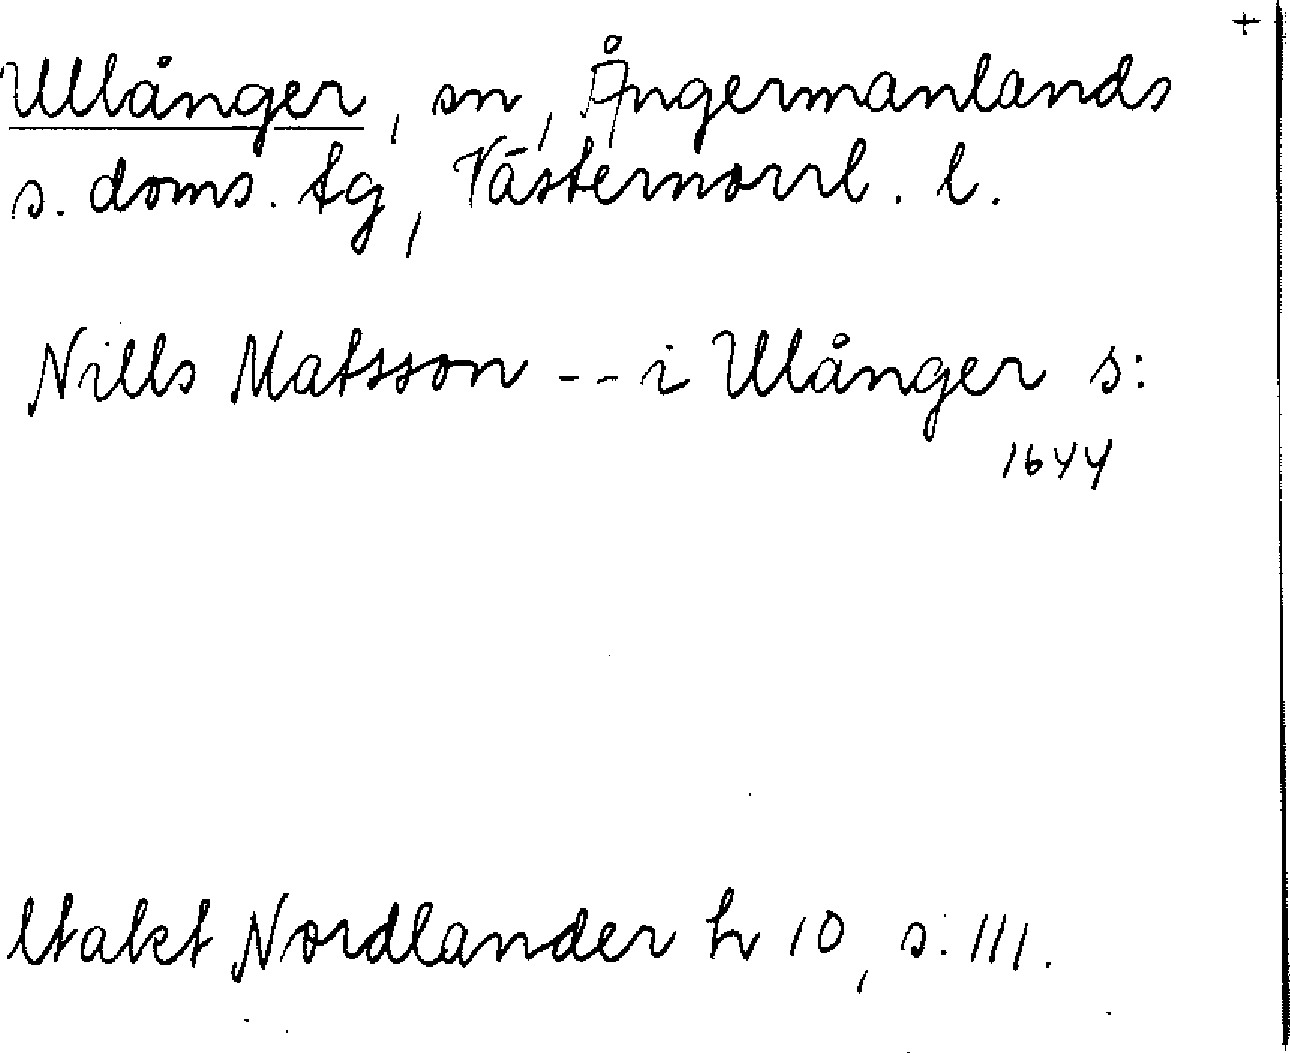 +
Ullånger, sn, Ångermanlands
s. doms. tg, Västernorrl. l.
Nills Matsson -- i Ulånger s:
1644
Nordlander h 10, s. 111.